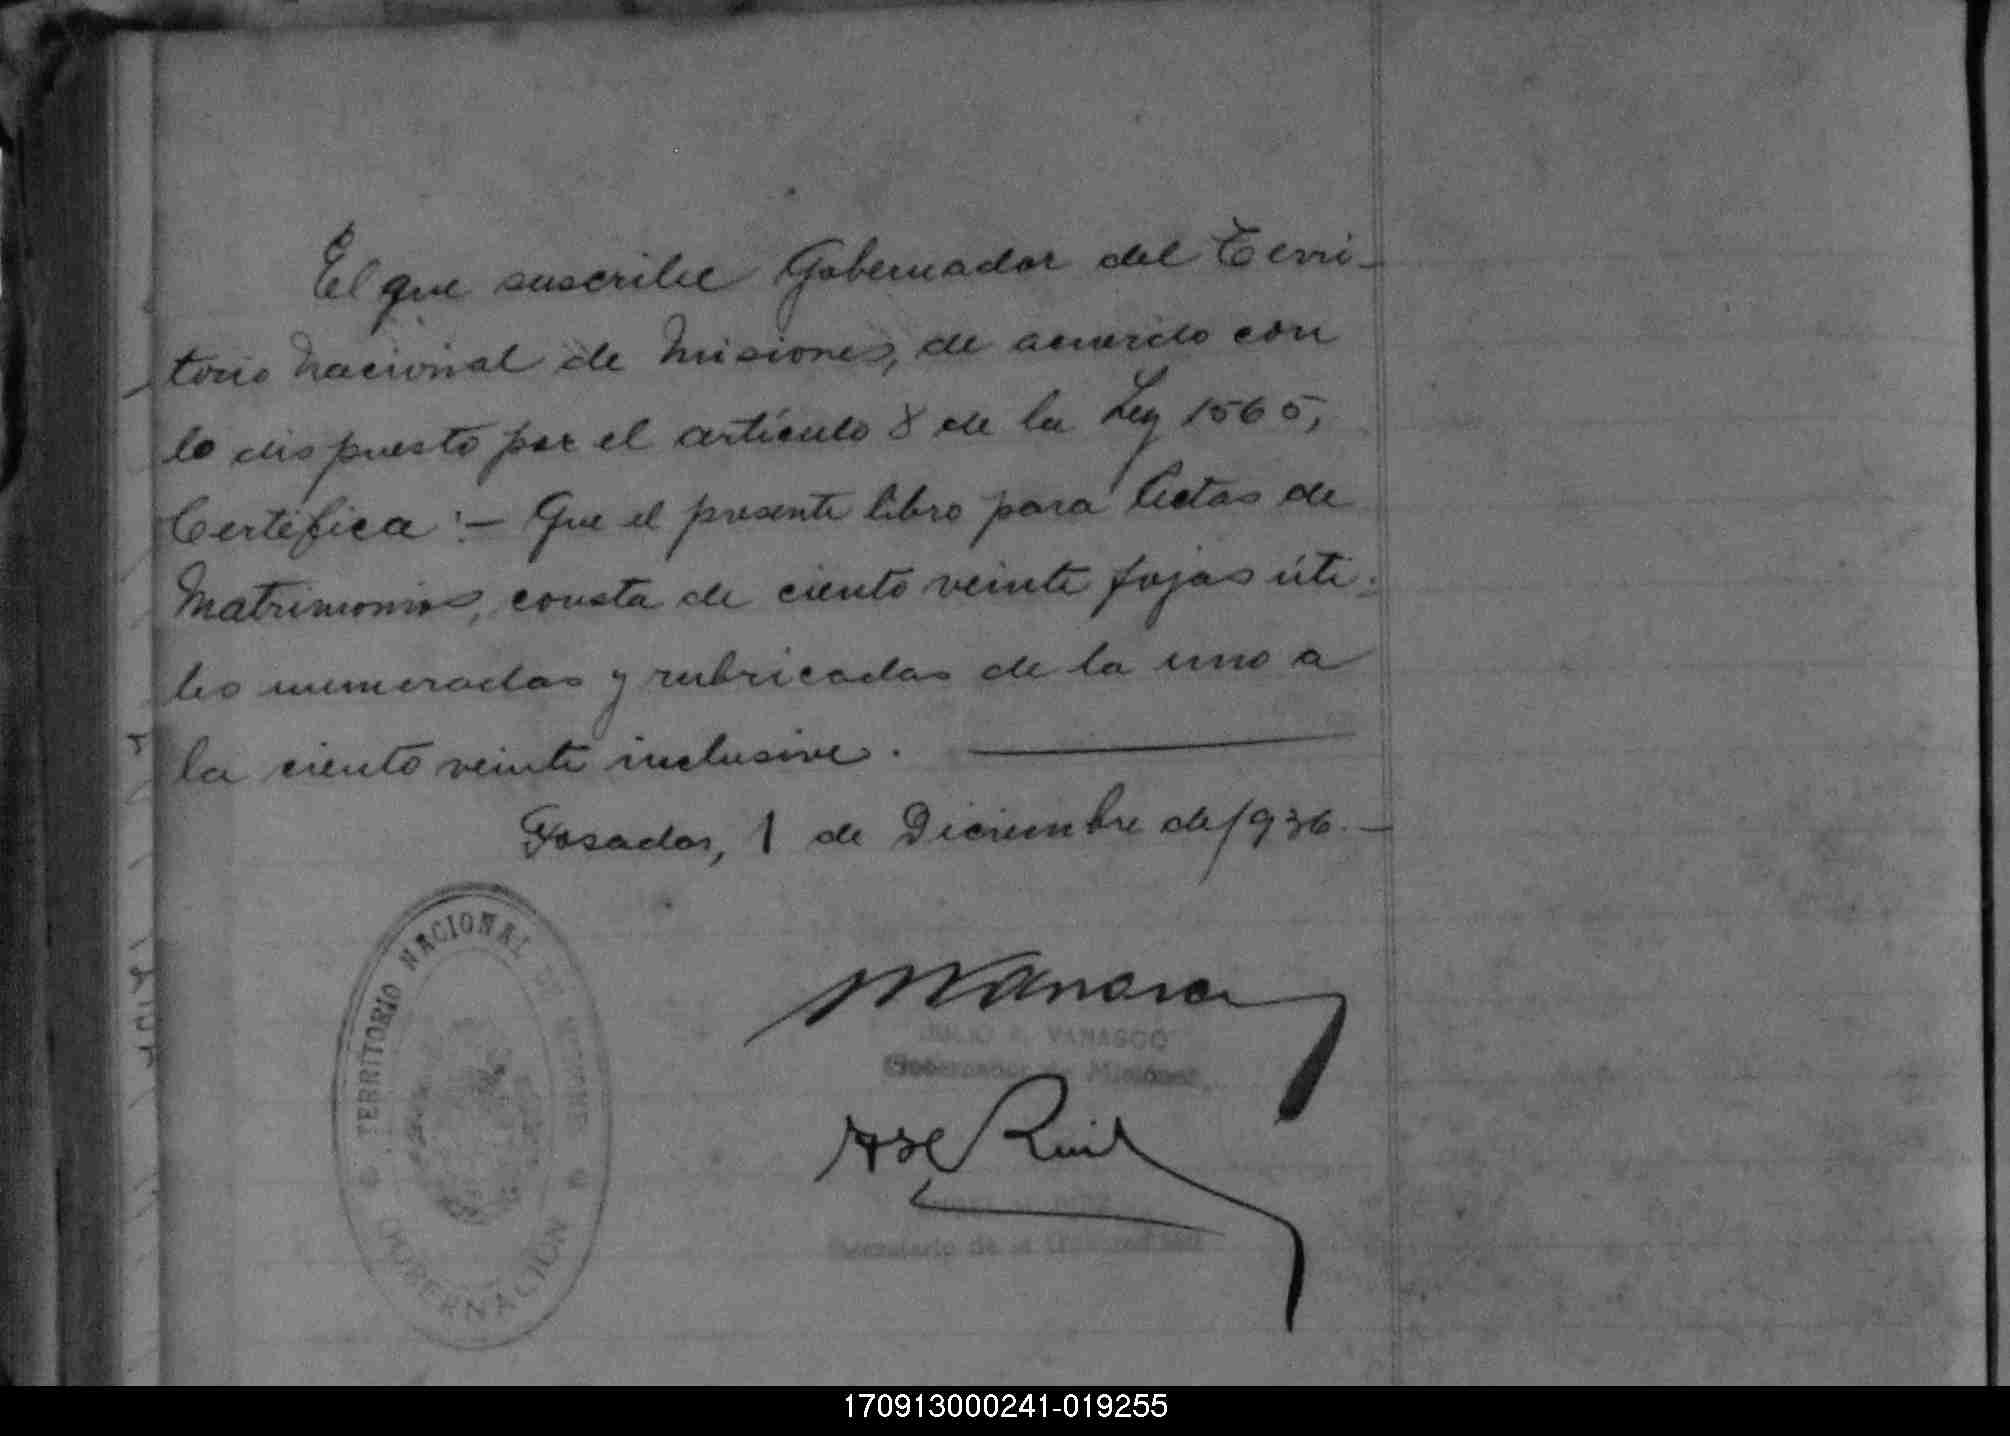 El que suscribe Gobernador del Terri-
torio Nacional de Misiones, de acuerdo con
lo dispuesto por el artículo 8 de la Ley 1565,
Certifica:- Que el presente libro para Actas de
Matrimonios, consta de ciento veinte fojas úti-
les numeradas y rubricadas de la uno a
la ciento veinte inclusive.
Posadas, 1 de Diciembre de 1936.-
TERRITORIO NACIONAL DE MISIONES
GOBERNACION
JULIO VANASCO
Gobernador de Misiones
Ruiz
Secretario de la Gobernación
170913000241-019255